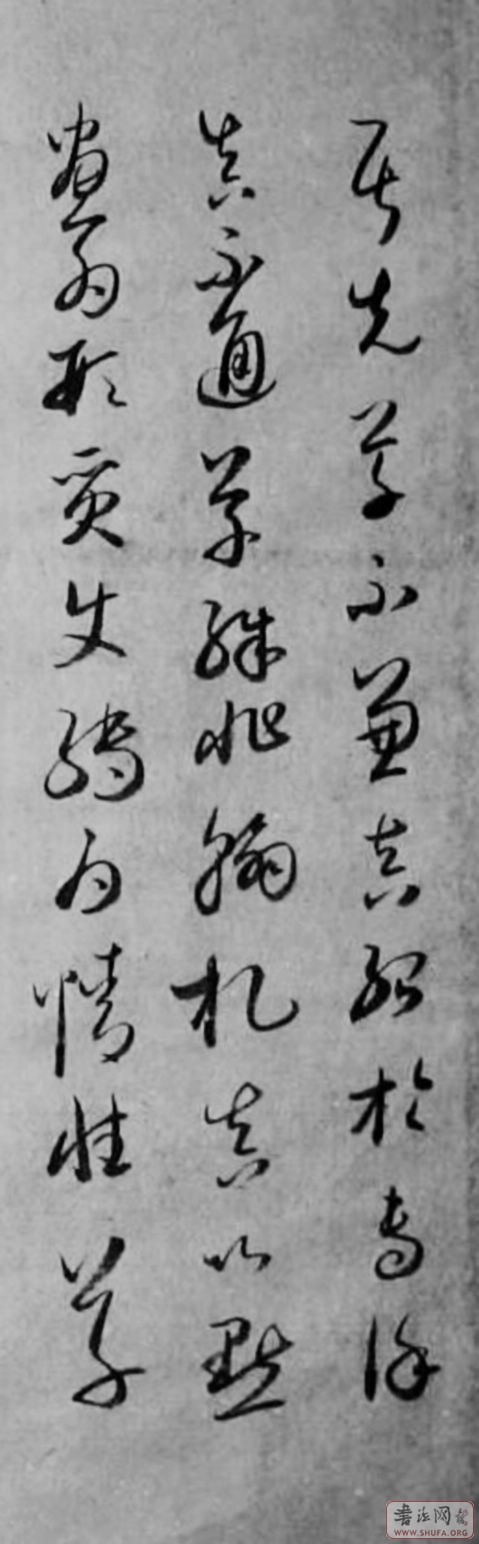 居先草不兼真殆於專謹
真不通草殊非翰札真以點
畫為形質使轉為情性草
書法网
WWW.SHUFA.ORG